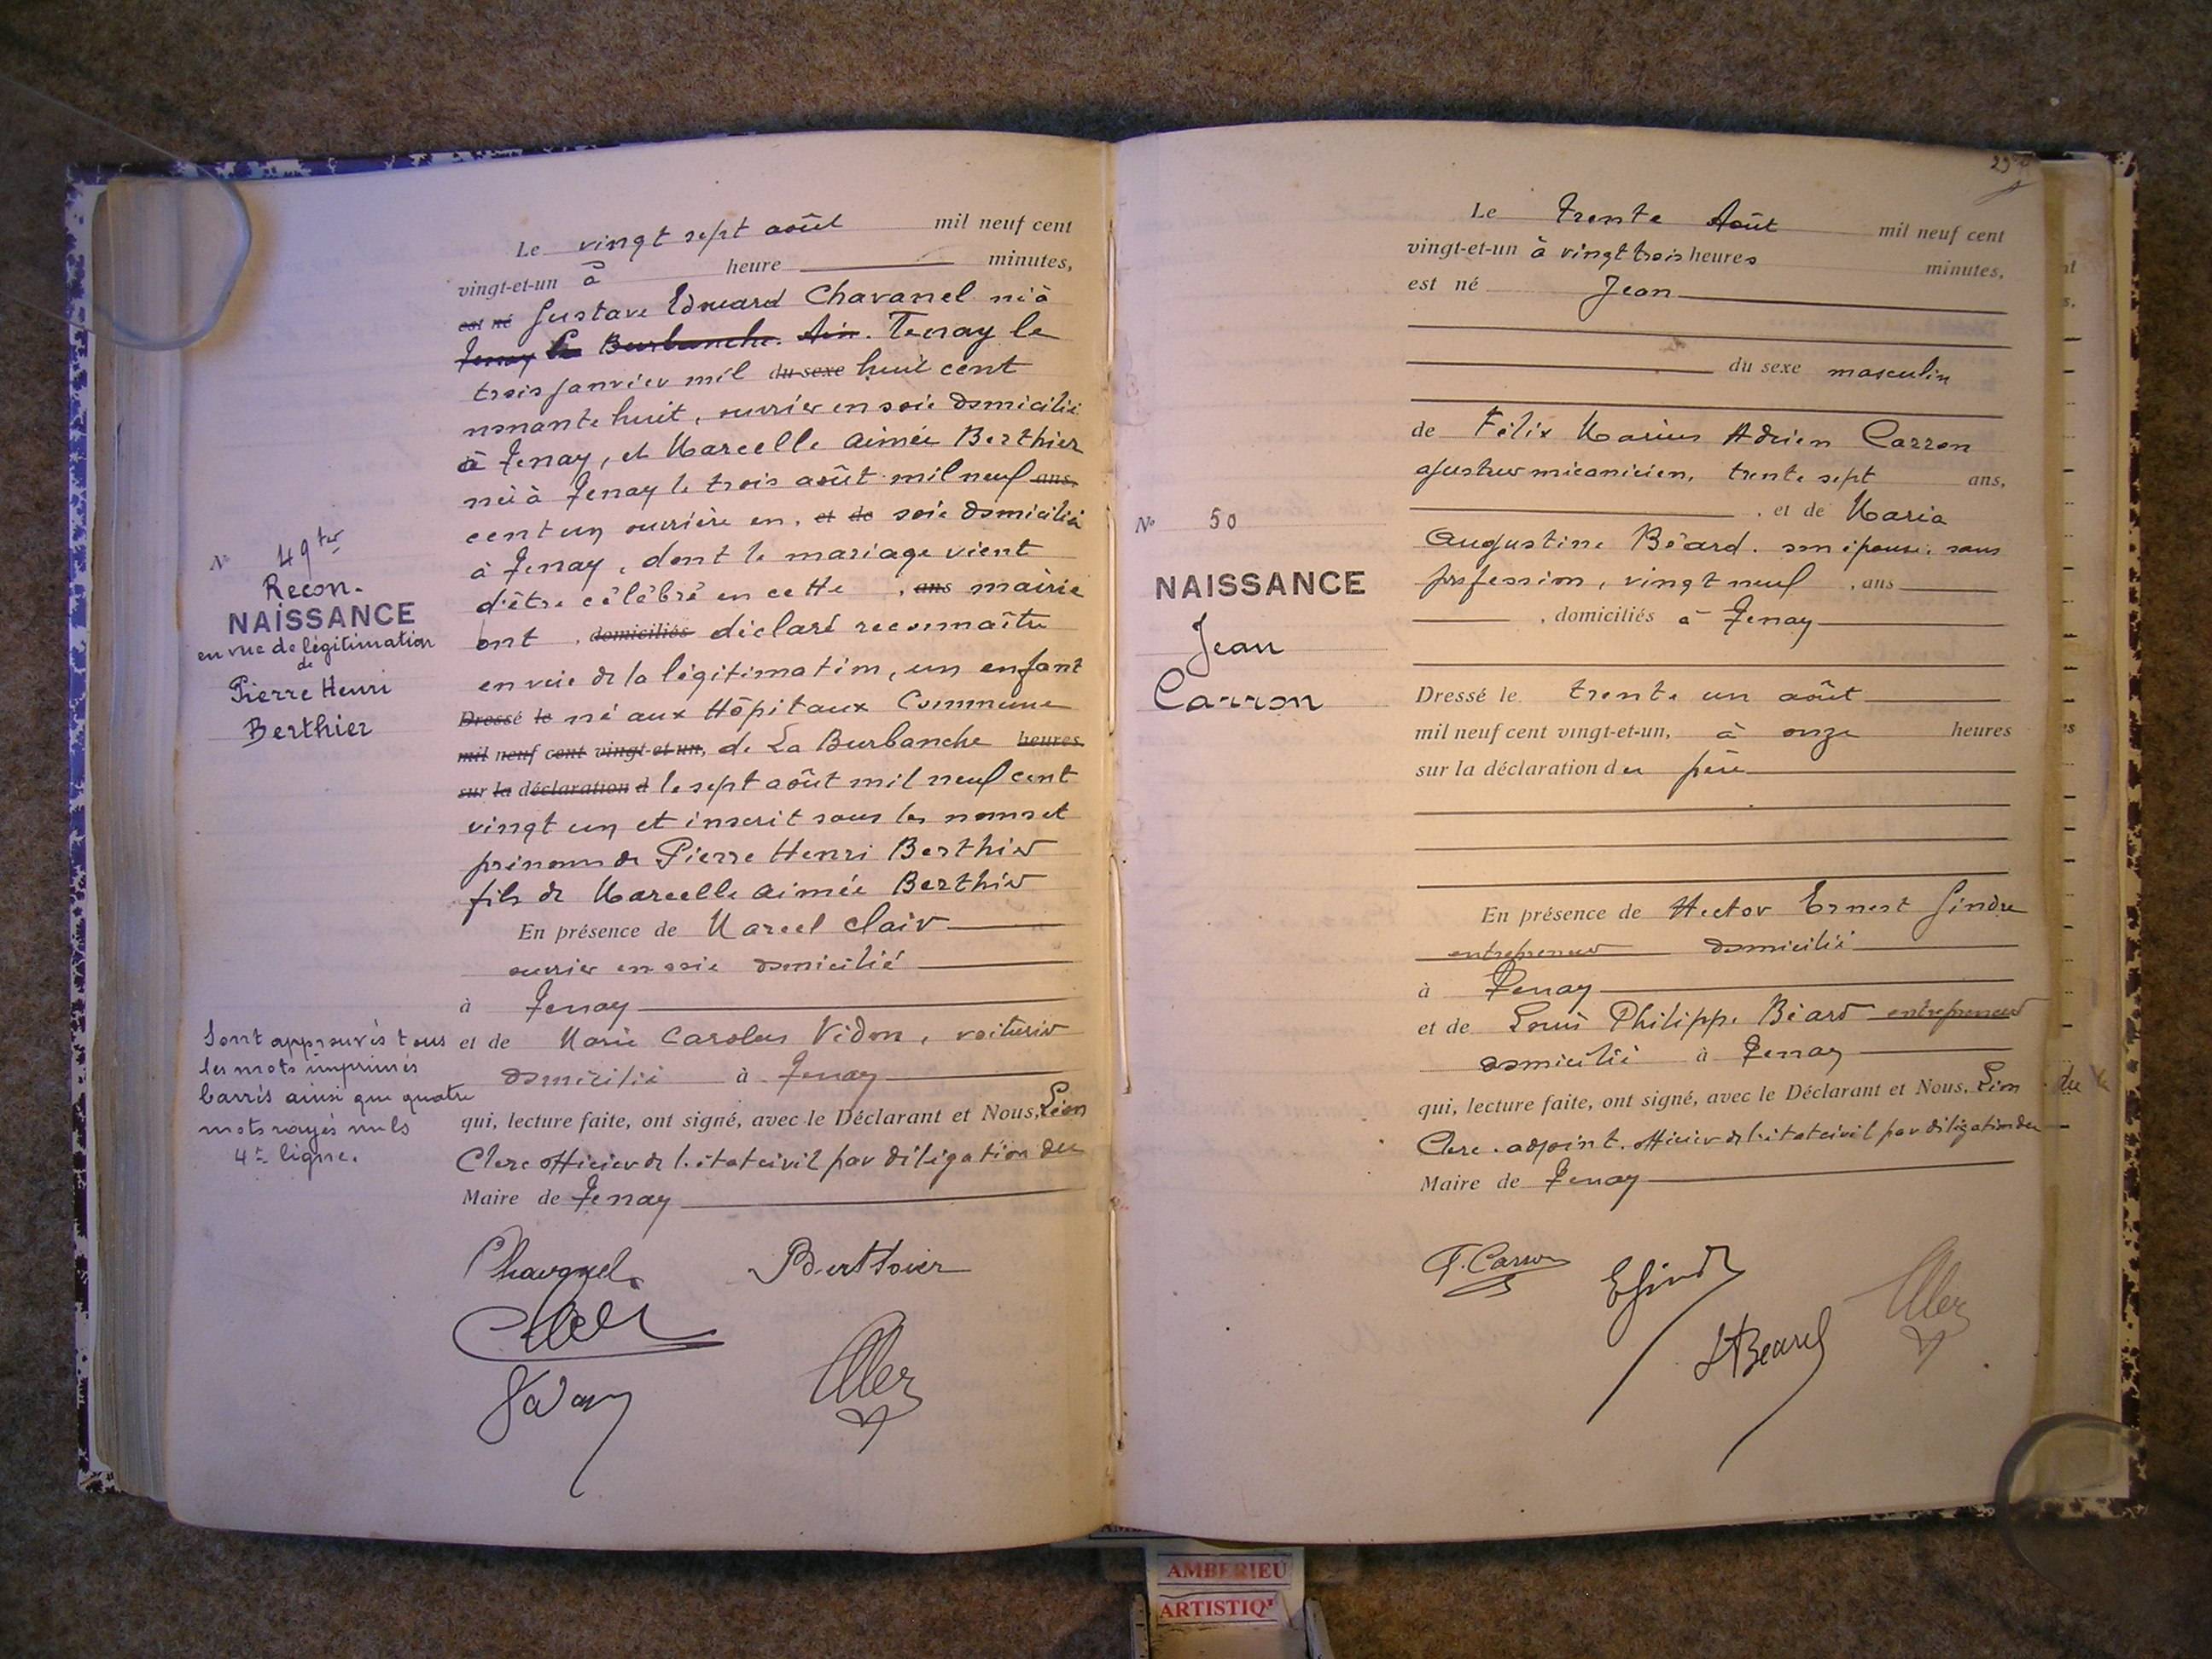 N° 49ter
Recon-
NAISSANCE
en vue de légitimation
de
Pierre Henri
Berthier
Sont approuvés tous
les mots imprimés
barrés ainsi que quatre
mots rayés nuls
4e ligne.
Le vingt sept août mil neuf cent
vingt-et-un à heure minutes,
est né Gustave Edouard Chavanel né à
Tenay La Burbanche. Ain. Tenay le
trois janvier mil du sexe huit cent
nonante huit, ouvrier en soie domicilié
à Tenay, et Marcelle Aimée Berthier
née à Tenay le trois août mil neuf ans,
cent un ouvrière en, et de soie domiciliée
à Tenay, dont le mariage vient
d'être célébré en cette , ans mairie
ont , domiciliés déclaré reconnaître
en vue de la légitimation, un enfant
Dressé le né aux Hôpitaux Commune
mil neuf cent vingt-et-un, de La Burbanche heures
sur la déclaration d le sept août mil neuf cent
vingt un et inscrit sous les noms et
prénoms de Pierre Henri Berthier
fils de Marcelle Aimée Berthier
En présence de Marcel Clair
ouvrier en soie domicilié
à Tenay
et de Marie Carolus Vidon, voiturier
domicilié à Tenay
qui, lecture faite, ont signé, avec le Déclarant et Nous, Léon
Clerc officier de l'état civil par délégation du
Maire de Tenay
Chavanel Berthier
Clair
Vidon
N° 50
NAISSANCE
Jean
Carron
Le trente Août mil neuf cent
vingt-et-un à vingt trois heures minutes,
est né Jean
du sexe masculin
de Félix Marius Adrien Carron
ajusteur mécanicien, trente sept ans,
, et de Maria
Augustine Béard. son épouse, sans
profession, vingt neuf , ans
, domiciliés à Tenay
Dressé le trente un août
mil neuf cent vingt-et-un, à onze heures
sur la déclaration du père
En présence de Hector Ernest Gindre
entrepreneur domicilié
à Tenay
et de Louis Philippe Béard entrepreneur
domicilié à Tenay
qui, lecture faite, ont signé, avec le Déclarant et Nous, Léon
Clerc. adjoint. officier de l'état civil par délégation du
Maire de Tenay
F. Carron
EGindre
LBeard
du
AMBERIEU
ARTISTIQ